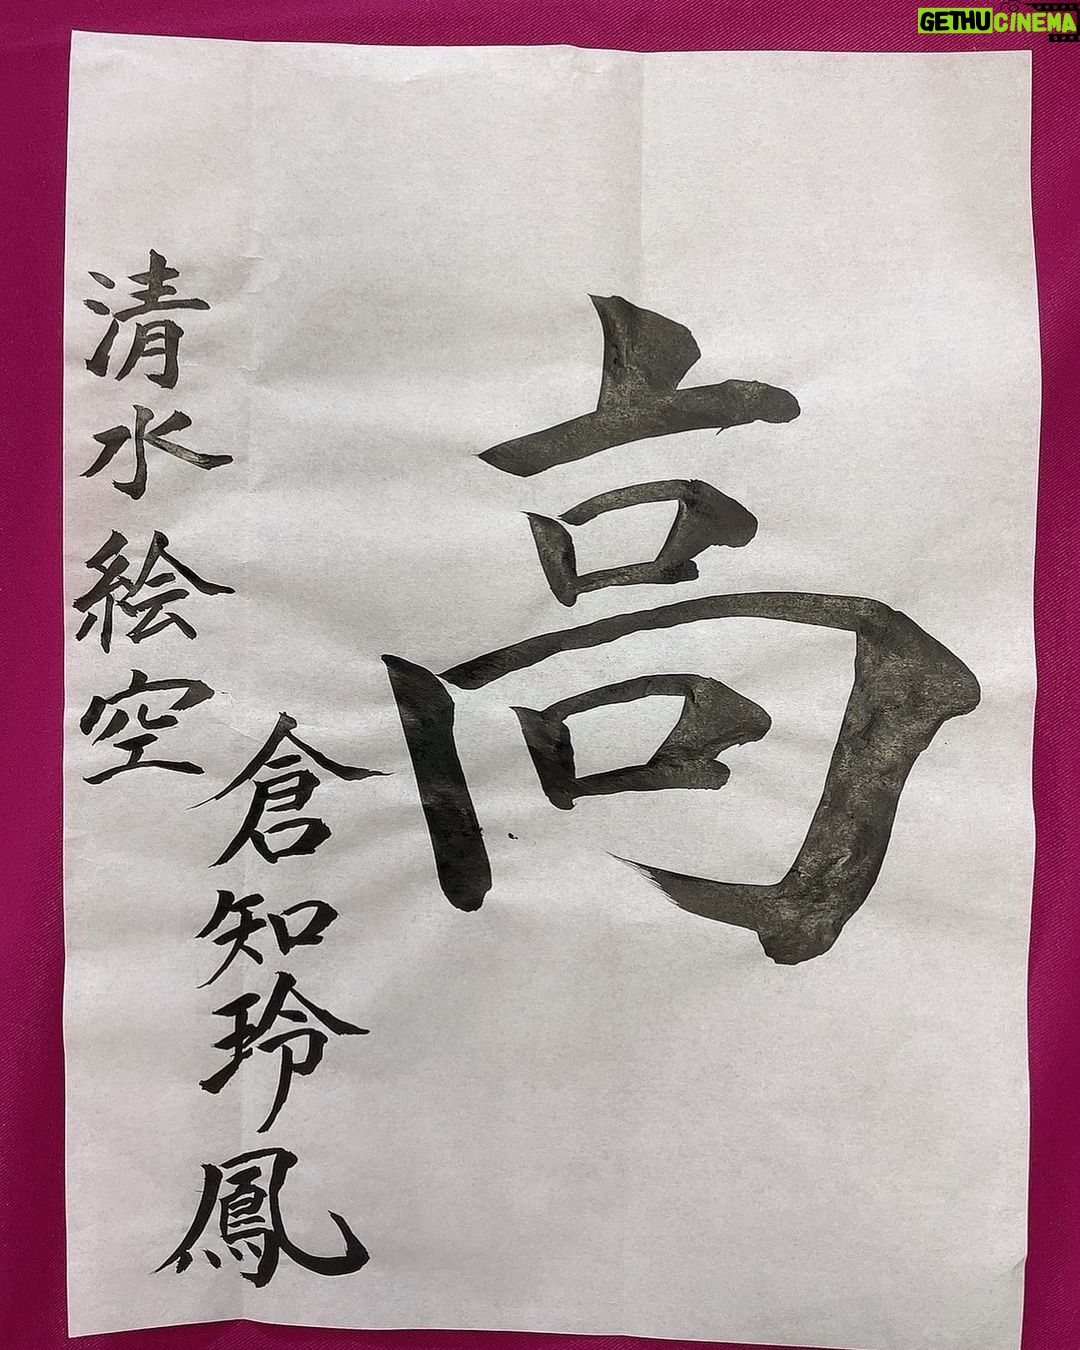 高
倉知玲鳳
清水絵空
GETHUCINEMA